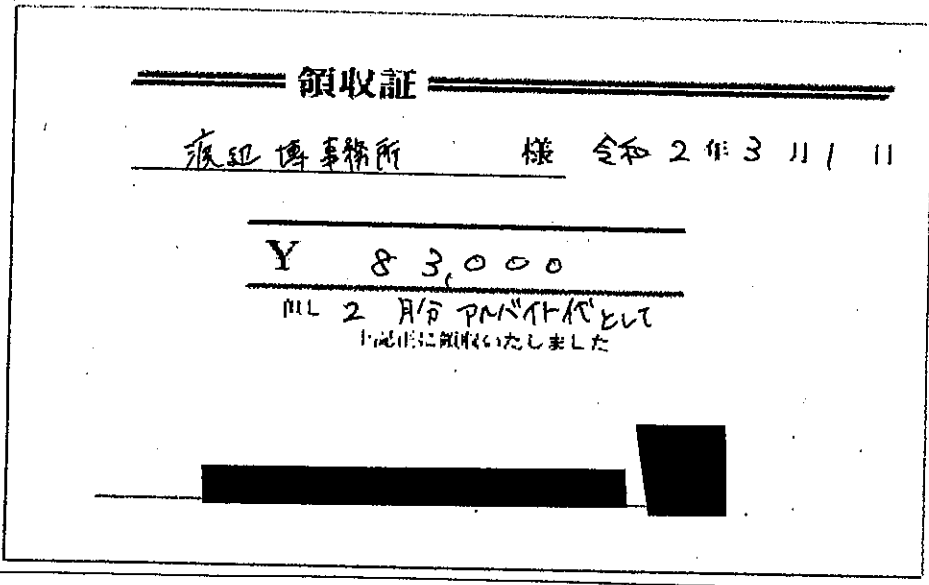 領収証
渡辺 博事務所 様 令和 2 年 3 月 1 日
¥ 83,000
但し 2 月分 アルバイト代として
上記正に領収いたしました